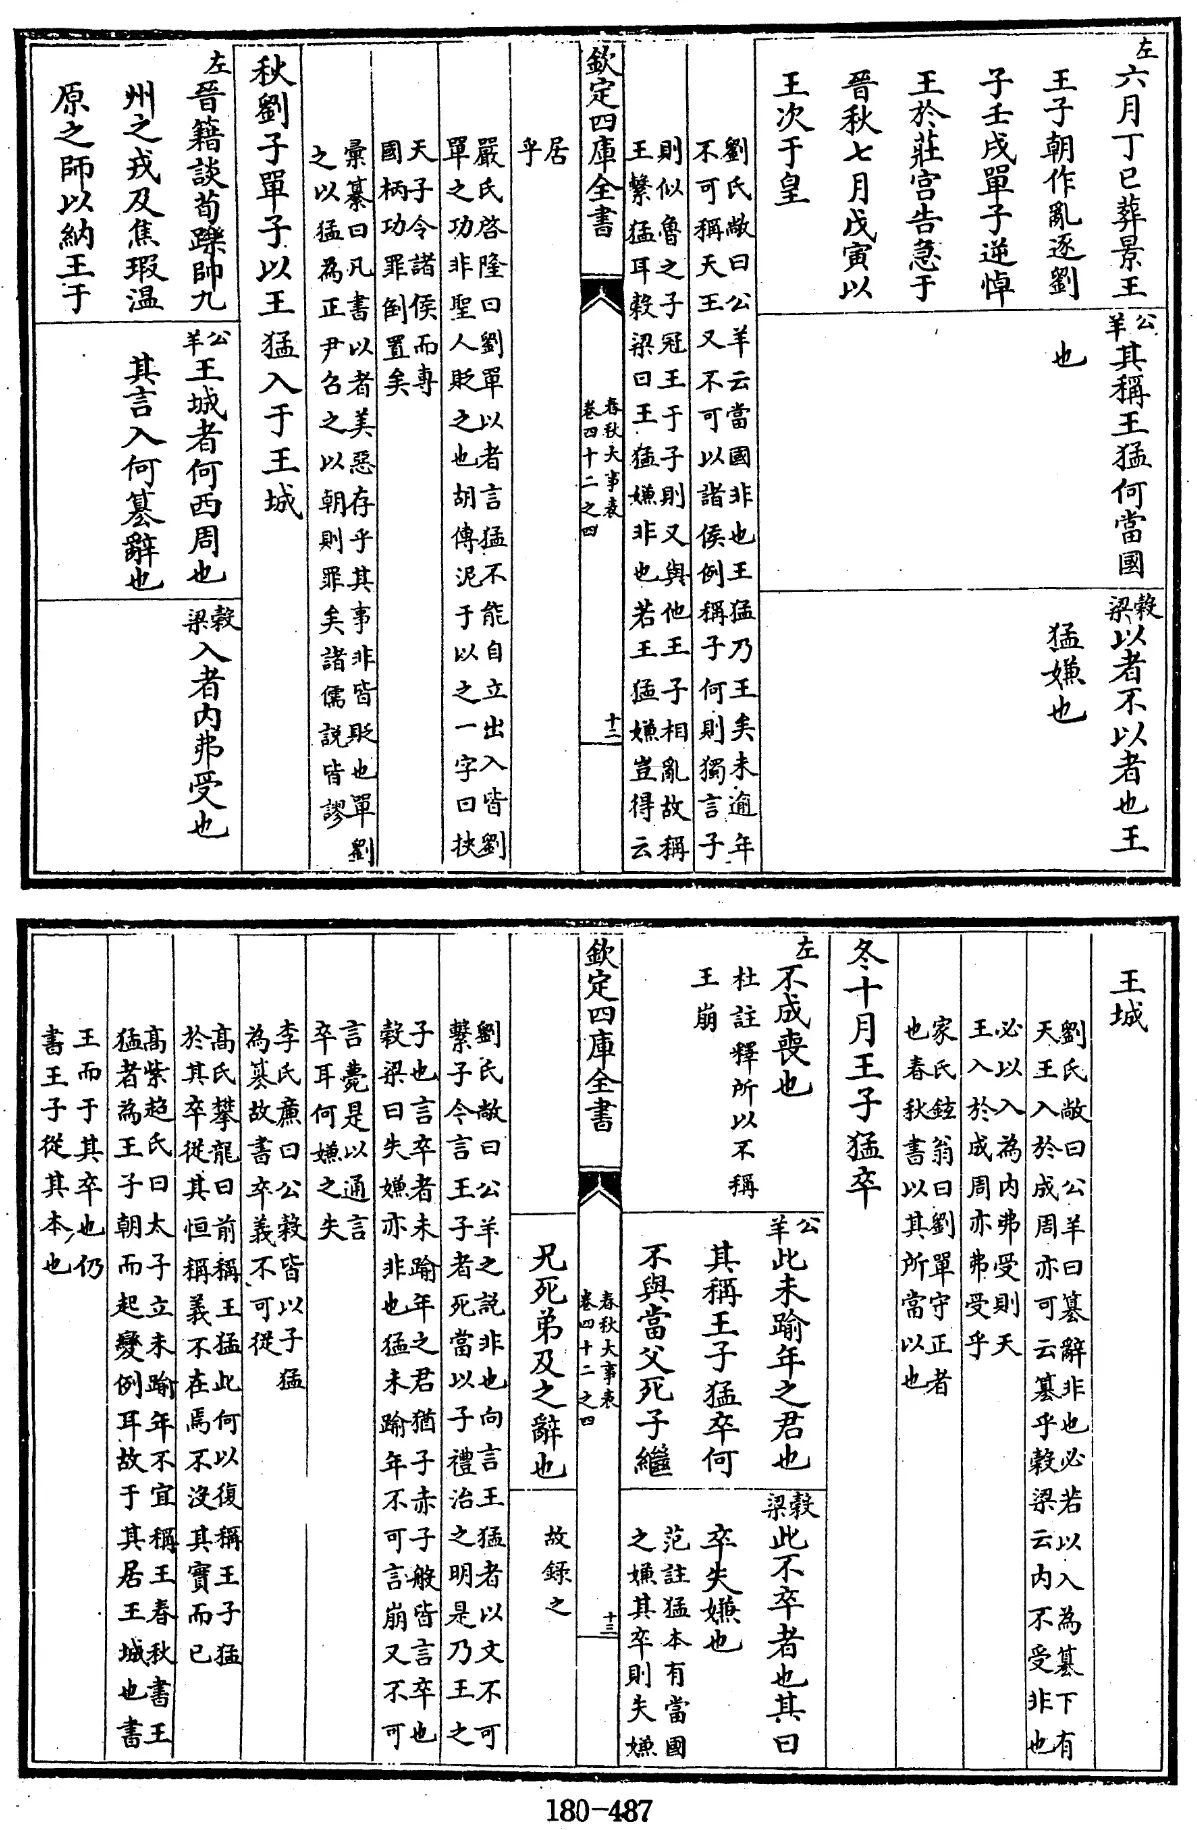 左六月丁巳葬景王
王子朝作亂逐劉
子壬戌單子逆悼
王於莊宮告急于
晉秋七月戊寅以
王次于皇
公羊其稱王猛何當國
也
穀梁以者不以者也王
猛嫌也
劉氏敞曰公羊云當國非也王猛乃王矣未逾年
不可稱天王又不可以諸侯例稱子何則獨言子
則似魯之子冠王于子則又與他王子相亂故稱
王繫猛耳穀梁曰王猛嫌非也若王猛嫌豈得云
居
乎
嚴氏啓隆曰劉單以者言猛不能自立出入皆劉
單之功非聖人貶之也胡傳泥于以之一字曰挾
天子令諸侯而專
國柄功罪倒置矣
彙纂曰凡書以者美惡存乎其事非皆貶也單劉
之以猛為正尹召之以朝則罪矣諸儒說皆謬
秋劉子單子以王猛入于王城
左晉籍談荀躒帥九
州之戎及焦瑕溫
原之師以納王于
公羊王城者何西周也
其言入何篡辭也
穀梁入者內弗受也
欽定四庫全書
春秋大事表
卷四十二之四
十二
王城
劉氏敞曰公羊曰篡辭非也必若以入為篡下有
天王入於成周亦可云篡乎穀梁云內不受非也
必以入為內弗受則天
王入於成周亦弗受乎
家氏鉉翁曰劉單守正者
也春秋書以其所當以也
冬十月王子猛卒
左不成喪也
杜註釋所以不稱
王崩
公羊此未踰年之君也
其稱王子猛卒何
不與當父死子繼
兄死弟及之辭也
穀梁此不卒者也其曰
卒失嫌也
范註猛本有當國
之嫌其卒則失嫌
故錄之
劉氏敞曰公羊之説非也向言王猛者以文不可
繫子今言王子者死當以子禮治之明是乃王之
子也言卒者未踰年之君猶子赤子般皆言卒也
穀梁曰失嫌亦非也猛未踰年不可言崩又不可
言薨是以通言
卒耳何嫌之失
李氏廉曰公穀皆以子猛
為篡故書卒義不可從
高氏攀龍曰前稱王猛此何以復稱王子猛
於其卒從其恒稱義不在焉不沒其實而已
高紫超氏曰太子立未踰年不宜稱王春秋書王
猛者為王子朝而起變例耳故于其居王城也書
王而于其卒也仍
書王子從其本也
欽定四庫全書
春秋大事表
卷四十二之四
十三
180-487